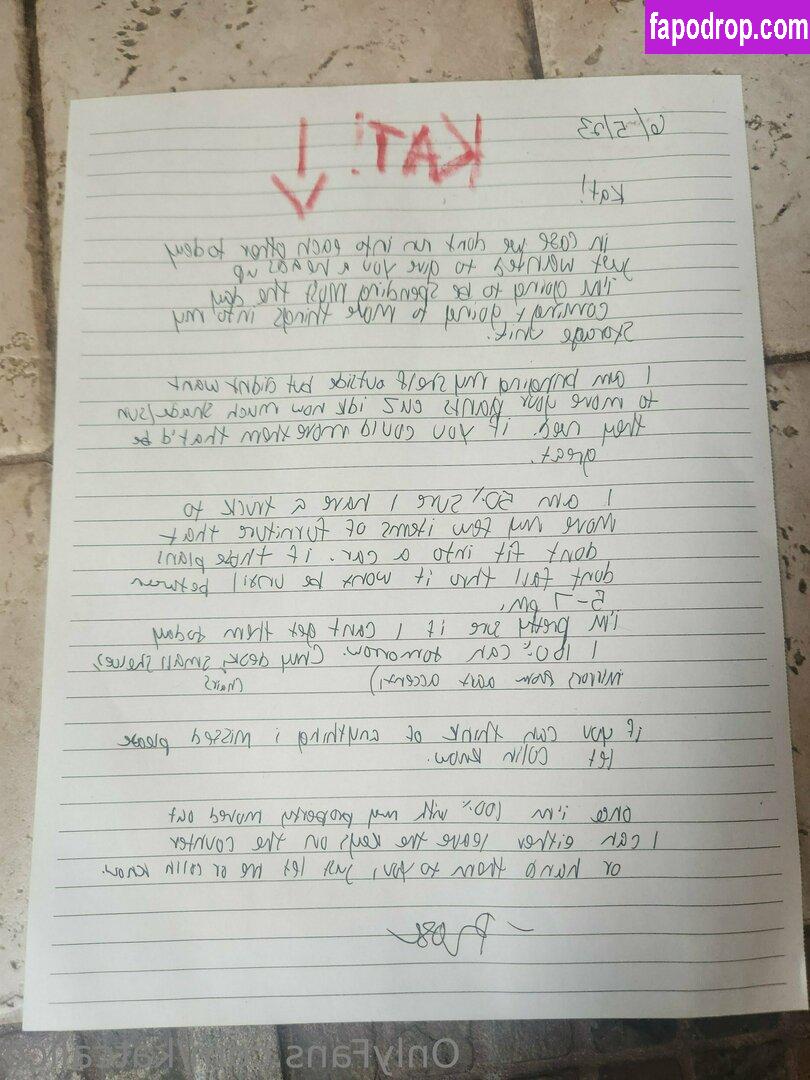 fapodrop.com
6/5/23
KAT!
Kat!
in case we dont run into each other today
just wanted to give you a heads up
i'm going to be spending most the day
coming + going to move things into my
storage unit.
I am bringing my shelf outside but didnt want
to move your plants cuz idk how much shade/sun
they need. if you could move them that'd be
great.
I am 50% sure I have a truck to
move my few items of furniture that
dont fit into a car. if those plans
dont fall thru it wont be until between
5-7 pm.
i'm pretty sure if I cant get them today
I 100% can tomorrow. (my desk, small shelves,
mirrors from aunt accent,) chairs
if you can think of anything i missed please
let colin know.
once i'm 100% with my property moved out
I can either leave the keys on the counter
or hand them to you, just let me or colin know.
OnlyFans